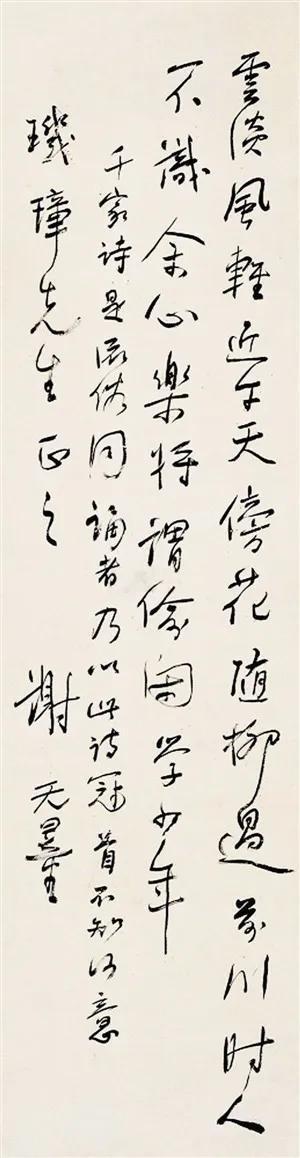 雲淡風輕近午天傍花随柳過前川时人
不識余心樂将謂偷閑学少年
千家詩是流俗同誦者乃以此詩冠首不知何意
璣璋先生正之
謝无量